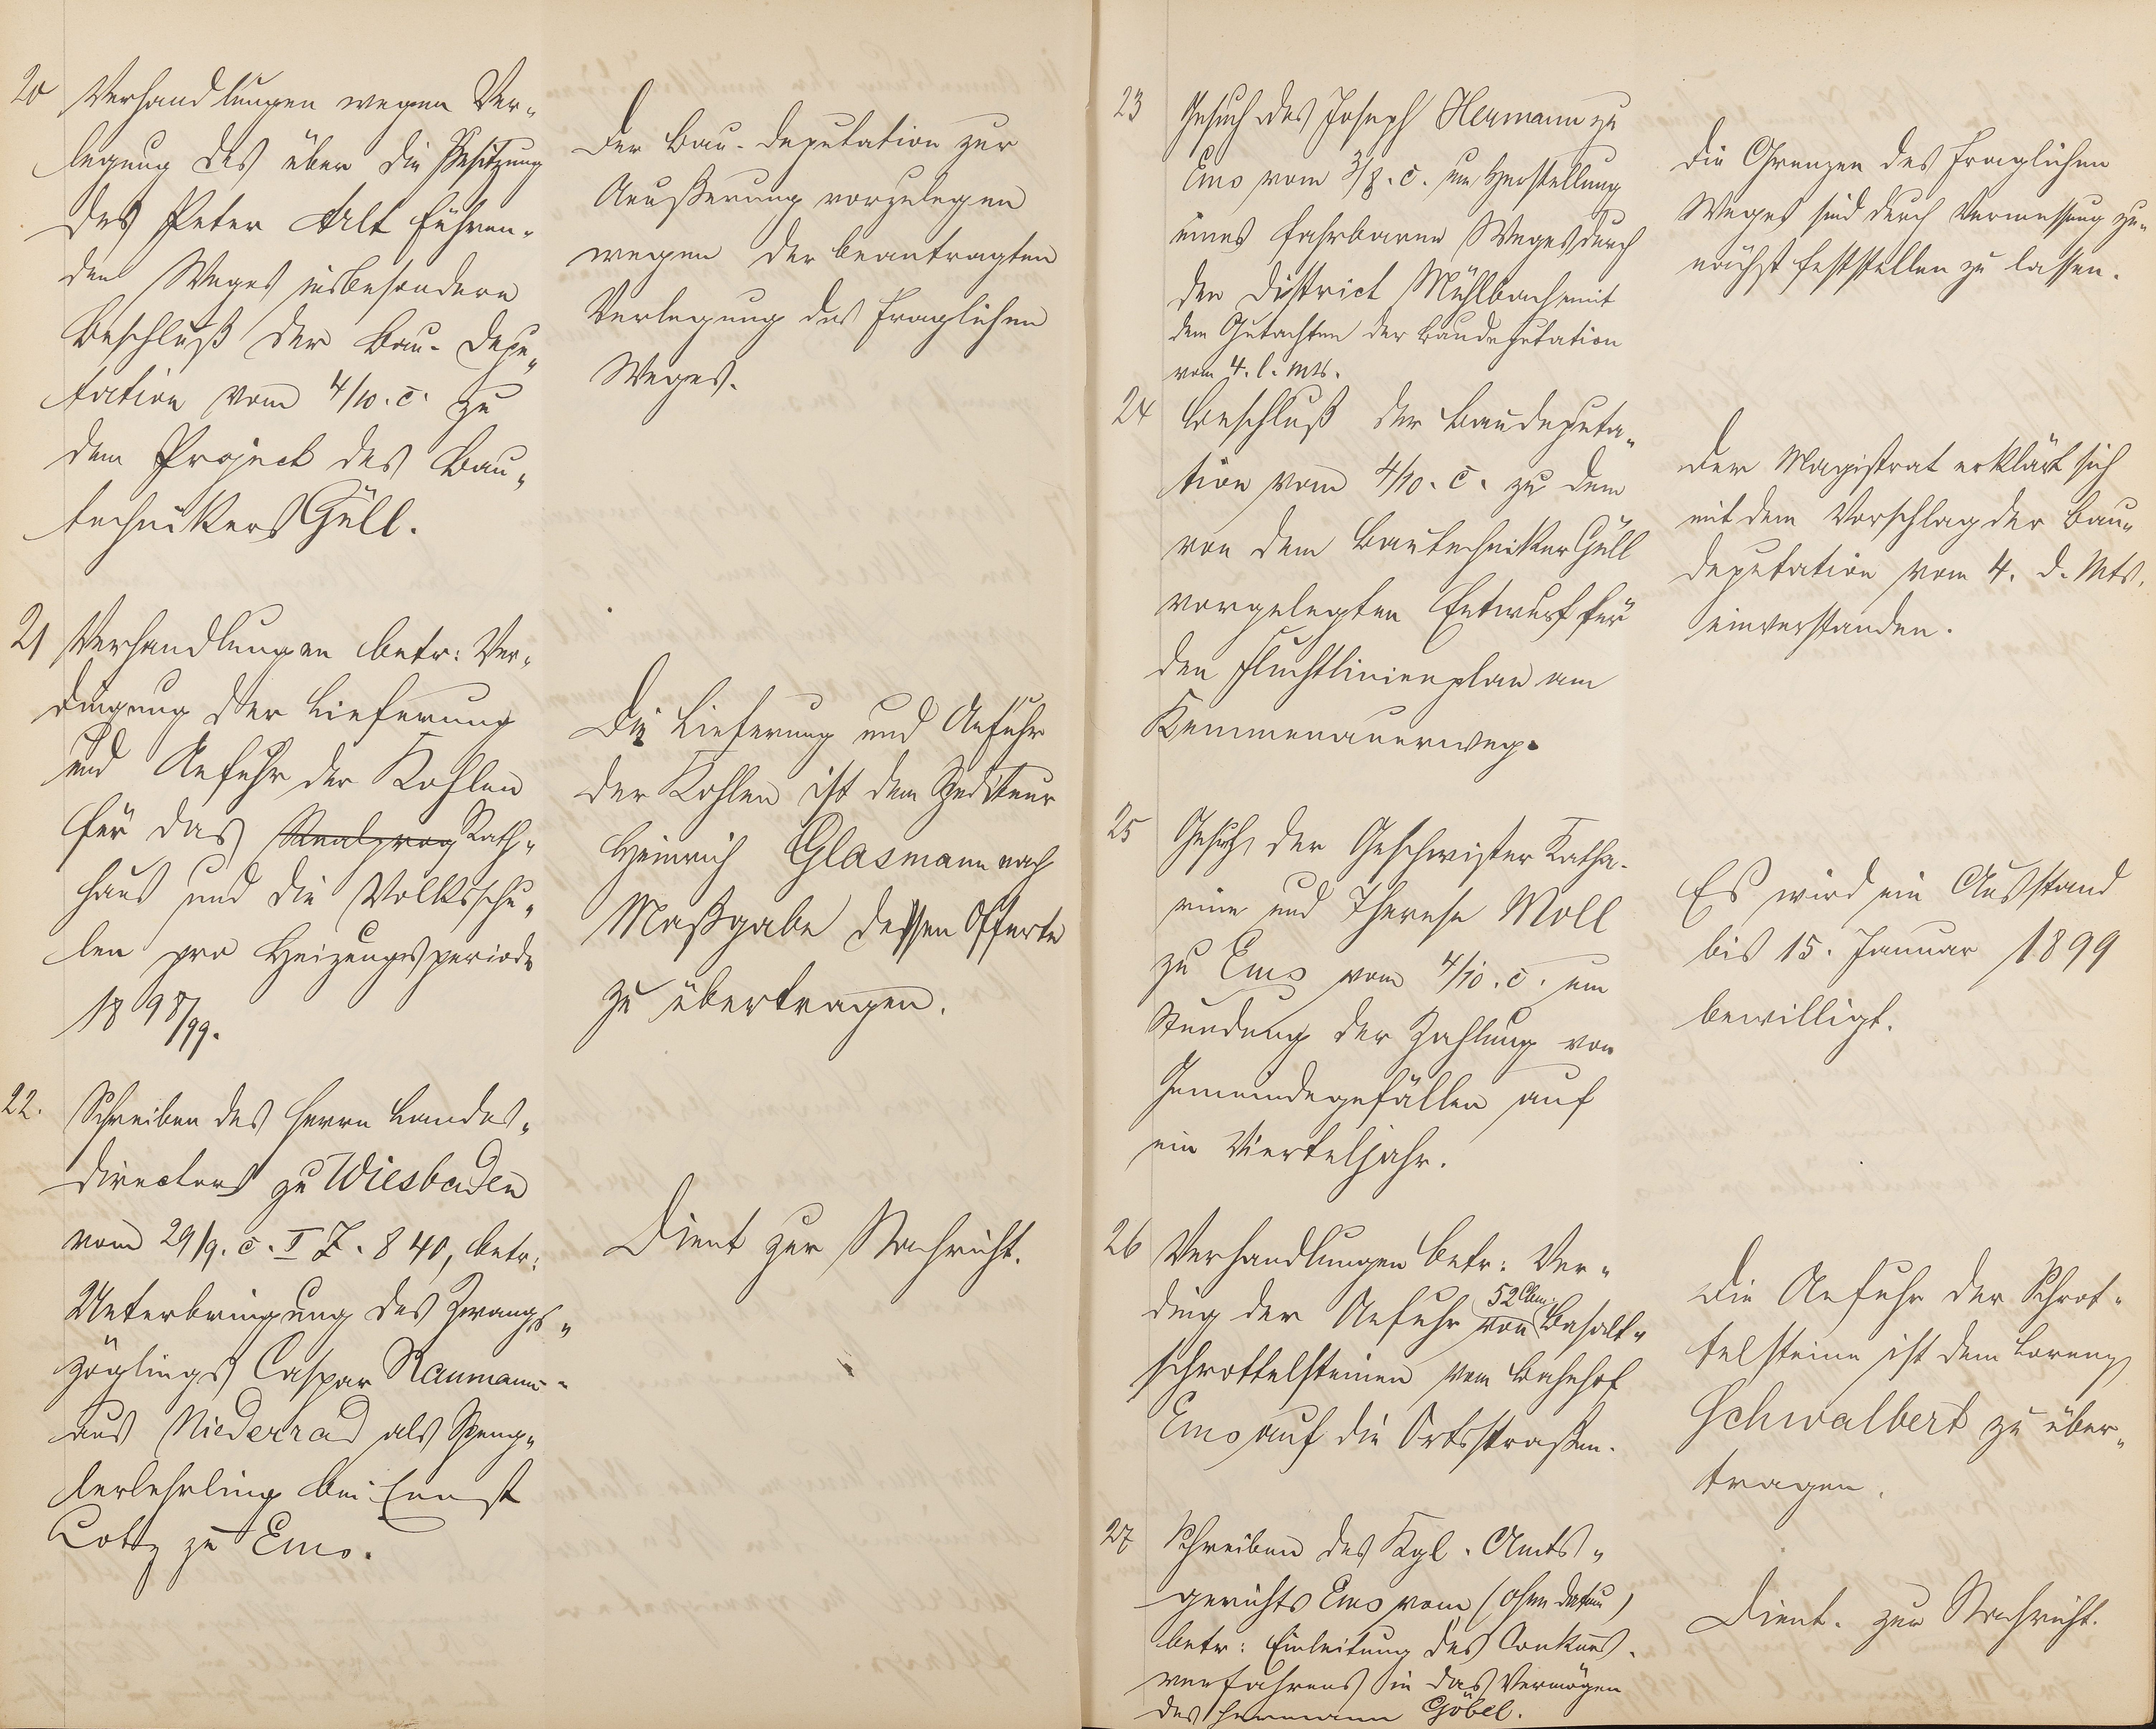 20 Verhandlungen wegen Ver-
legung des über die Besitzung
des Peter Alt führen-
den Weges insbesondere
Beschluß der Bau-Depu-
tation vom 4/10. c. zu
dem Project des Bau-
technikers Güll.
Der Bau-Deputation zur
Aeußerung vorzulegen
wegen der beantragten
Verlegung des fraglichen
Weges.
21 Verhandlungen betr: Ver-
dingung der Lieferung
und Anfuhr der Kohlen
für das Realprog Rath-
haus und die Volksschu-
len pro Heizungsperiode
1898/99.
Die Lieferung und Anfuhr
der Kohlen ist dem Spediteur
Heinrich Glasmann nach
Maßgabe dessen Offerte
zu übertragen.
22. Schreiben des Herrn Landes-
directors zu Wiesbaden
vom 29/9. c. I Z. 840, betr:
Unterbringung des Zwangs-
zöglings Caspar Naumann
aus Niederrad als Speng-
lerlehrling bei Ernst
Lotz zu Ems.
Dient zur Nachricht.
23 Gesuch des Joseph Hermann zu
Ems vom 3/8. c. um Herstellung
eines fahrbaren Weges durch
den District Mühlbach mit
dem Gutachten der Baudeputation
vom 4. l. Mts.
Die Grenzen des fraglichen
Weges sind durch Vermessung zu-
nächst feststellen zu lassen.
24 Beschluß der Baudeputa-
tion vom 4/10. c. zu dem
von dem Bautechniker Güll
vorgelegten Entwurf für
den Fluchtlinienplan am
Kemmenauerweg.
Der Magistrat erklärt sich
mit dem Vorschlag der Bau-
deputation vom 4. d. Mts.
einverstanden.
25 Gesuch der Geschwister Katha-
rine und Therese Moll
zu Ems vom 4/10. c. um
Stundung der Zahlung von
Gemeindegefällen auf
ein Vierteljahr.
Es wird ein Ausstand
bis 15. Januar 1899
bewilligt.
26 Verhandlungen betr: Ver-
ding der Anfuhr von 52 Cbm. Basalt-
schrottelsteinen vom Bahnhof
Ems auf die Ortsstraßen.
Die Anfuhr der Schrot-
telsteine ist dem Lorenz
Schwalbert zu über-
tragen.
27 Schreiben des Kgl. Amts-
gerichts Ems vom (ohne Datum)
betr: Einleitung des Conkurs-
verfahrens in das Vermögen
des Hermann Göbel.
Dient. zur Nachricht.